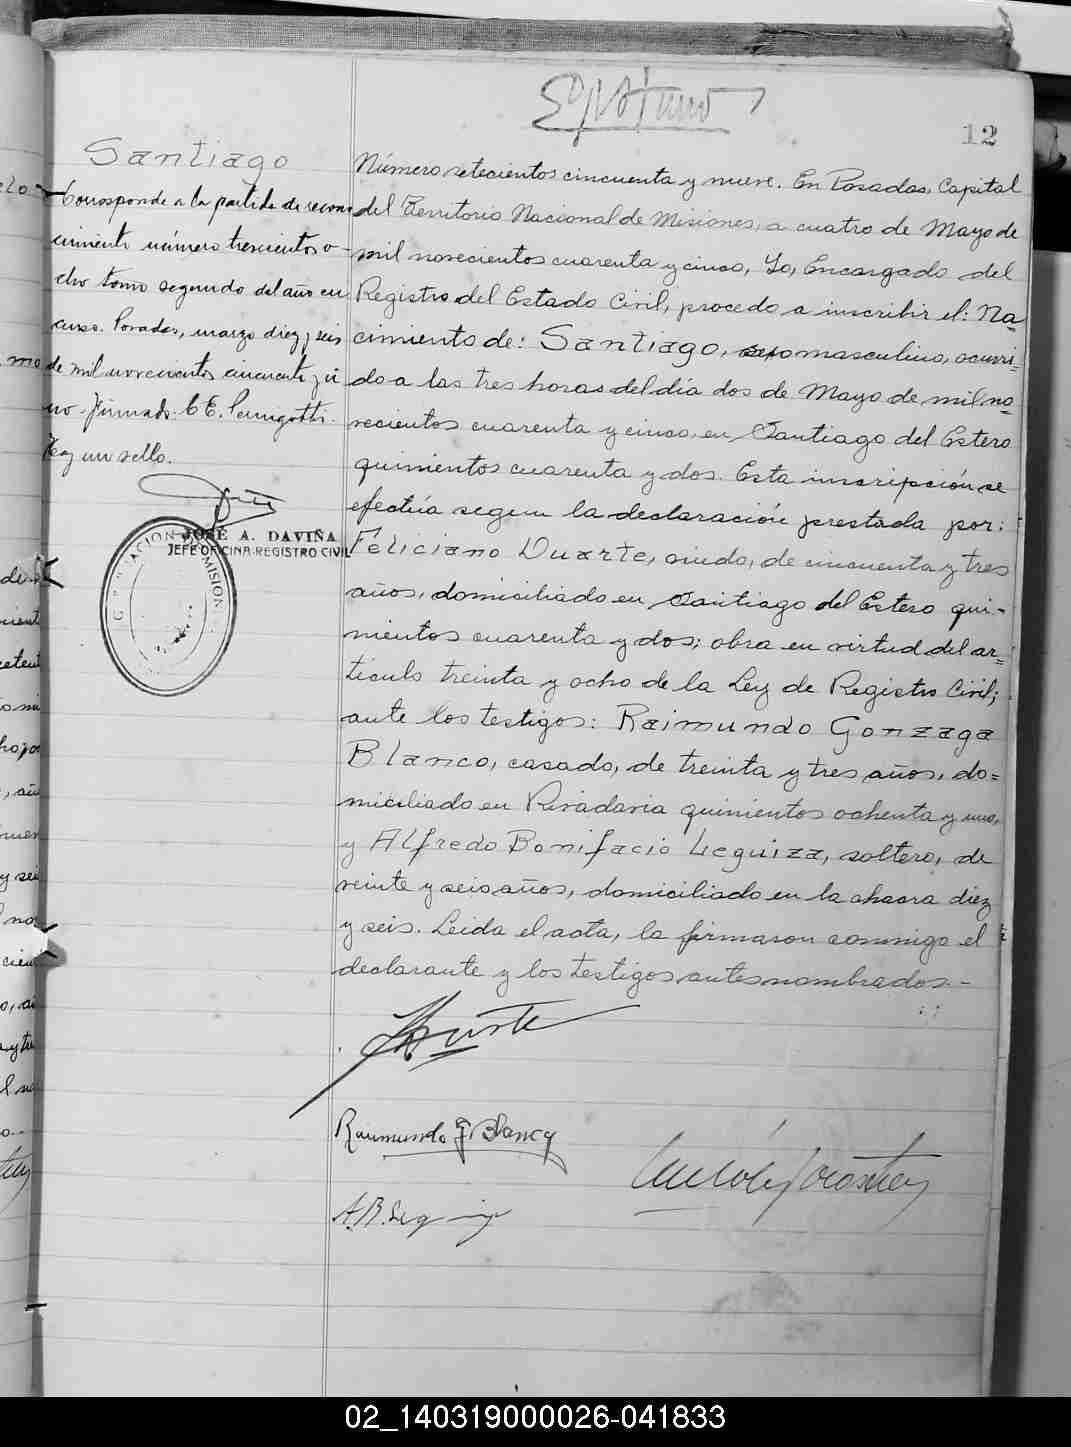 12
Santiago
Corresponde a la partida de recono
cimiento número trescientos o-
cho tomo segundo del año en
curso. Posadas, marzo diez y seis
de mil novecientos cincuenta y u
no. Firmado. C E.
Hay un sello.
JOSÉ A. DAVIÑA
JEFE OFICINA REGISTRO CIVIL
Número setecientos cincuenta y nueve. En Posadas, Capital
del Territorio Nacional de Misiones, a cuatro de Mayo de
mil novecientos cuarenta y cinco, Yo, Encargado del
Registro del Estado Civil, procedo a inscribir el: Na=
cimiento de: Santiago, sexo masculino, ocurri=
do a las tres horas del día dos de Mayo de mil no=
vecientos cuarenta y cinco, en Santiago del Estero
quinientos cuarenta y dos. Esta inscripción se
efectúa segun la declaración prestada por:
Feliciano Duarte, viudo, de cincuenta y tres
años, domiciliado en Santiago del Estero qui-
nientos cuarenta y dos; obra en virtud del ar=
tículo treinta y ocho de la Ley de Registro Civil;
ante los testigos: Raimundo Gonzaga
Blanco, casado, de treinta y tres años, do=
miciliado en Rivadavia quinientos ochenta y uno,
y Alfredo Bonifacio Leguiza, soltero, de
veinte y seis años, domiciliado en la chacra diez
y seis. Leida el acta, la firmaron conmigo el
declarante y los testigos antes nombrados.-
Duarte
Raimundo G. Blanco
A. B. Leguiza
02_140319000026-041833